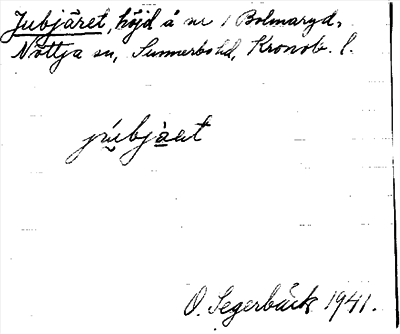 Jubjäret, höjd å nr 1 Bolmaryd,
Nöttja sn, Sunnerbo hd, Kronob. l.
júbjä̀ret
O. Segerbäck 1941.